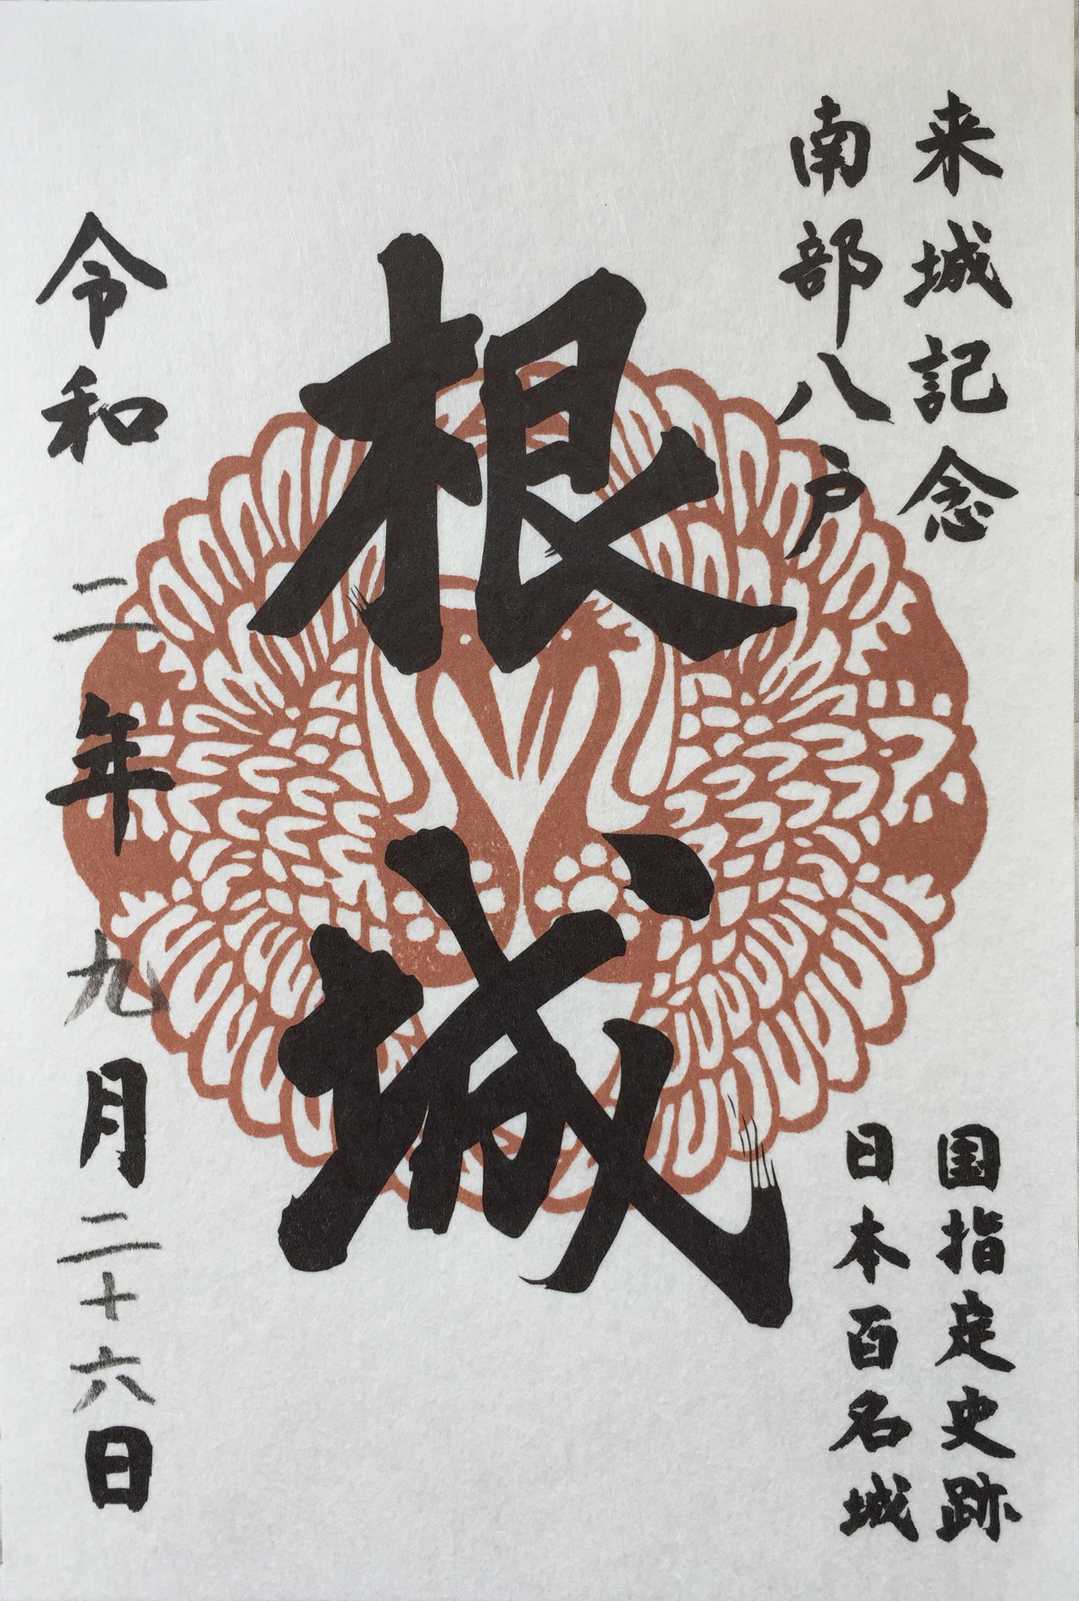 来城記念
南部八戸
国指定史跡
日本百名城
根城
令和二年九月二十六日